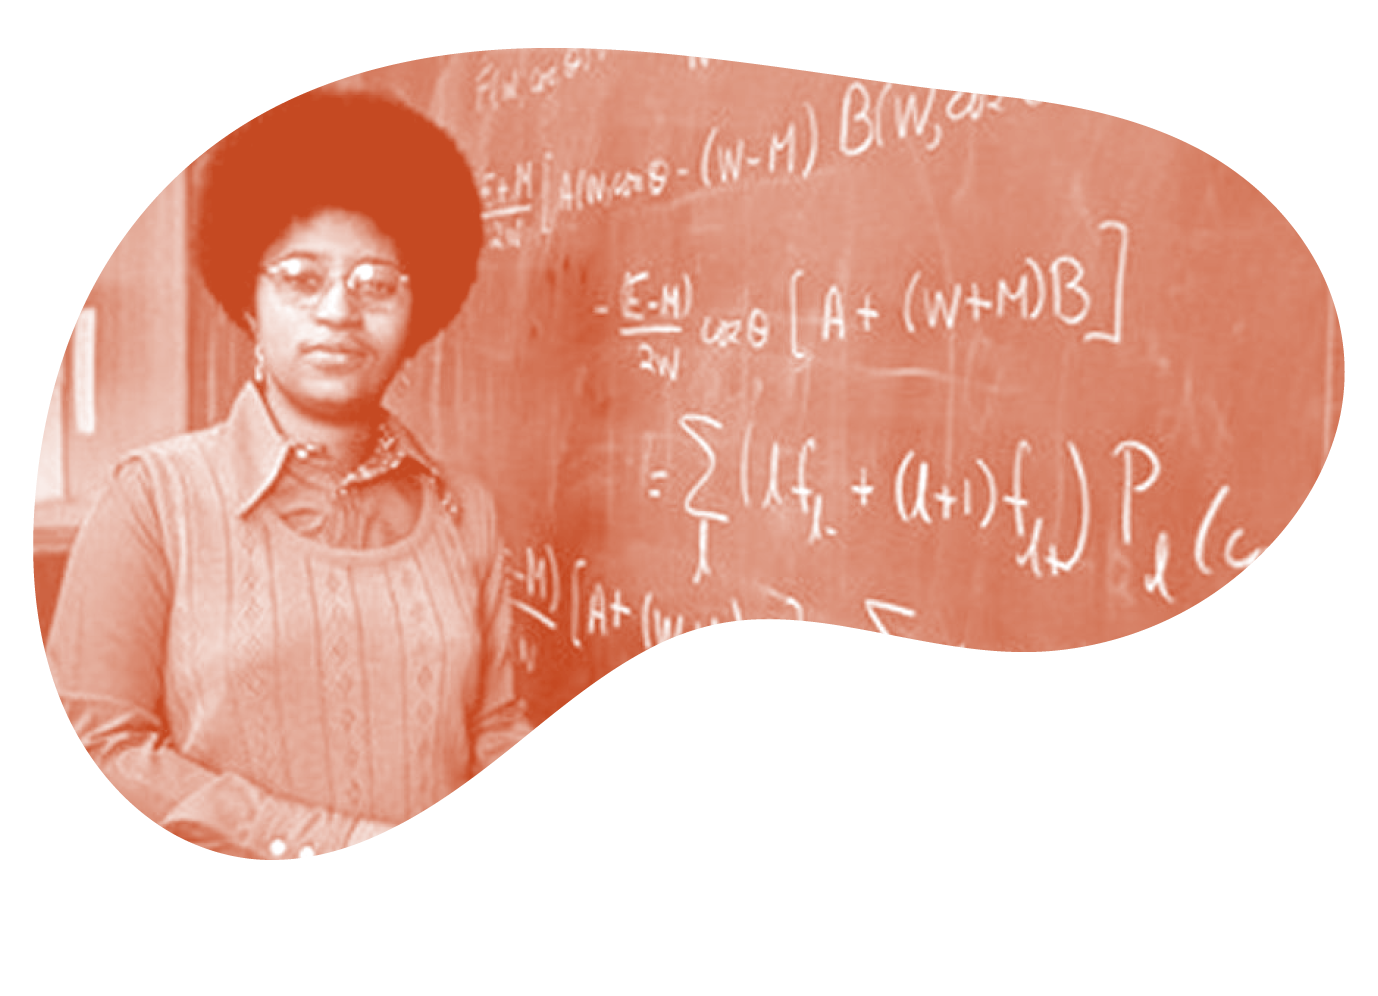 F(W, cos θ)
E+M/2W [A(W, cos θ - (W-M) B(W, cos
- (E-M)/2W cos θ [A + (W+M)B]
= Σ_l (l f_l- + (l+1) f_l+) P_l (c
-M) [A+ (W+
Σ